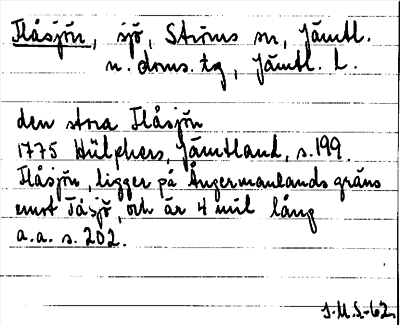 Flåsjön, sjö, Ströms sn, Jämtl.
n. doms. tg, Jämtl. L.
den stora Flåsjön
1775 Hülphers, Jämtland, s. 199.
Flåsjön, ligger på Ångermanlands gräns
emot Tåsjö, och är 4 mil lång
a.a. s. 202.
J.M.S.-62.